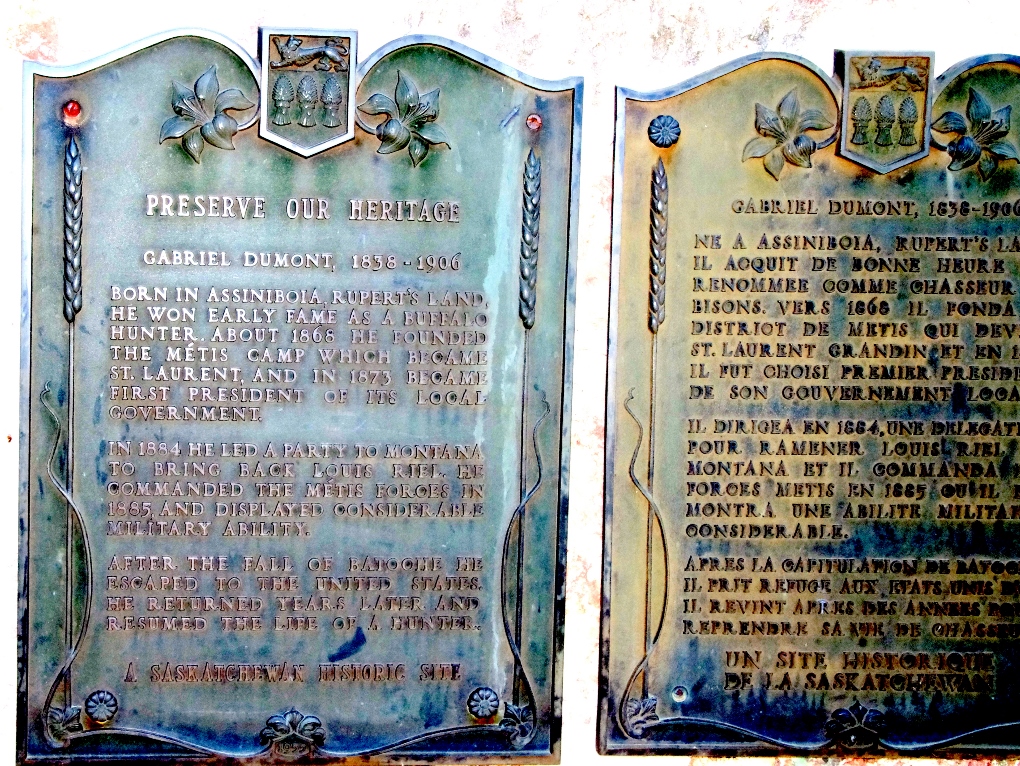 PRESERVE OUR HERITAGE
GABRIEL DUMONT, 1838-1906
BORN IN ASSINIBOIA, RUPERT'S LAND,
HE WON EARLY FAME AS A BUFFALO
HUNTER. ABOUT 1868 HE FOUNDED
THE MÉTIS CAMP WHICH BECAME
ST. LAURENT, AND IN 1873 BECAME
FIRST PRESIDENT OF ITS LOCAL
GOVERNMENT.
IN 1884 HE LED A PARTY TO MONTANA
TO BRING BACK LOUIS RIEL. HE
COMMANDED THE MÉTIS FORCES IN
1885, AND DISPLAYED CONSIDERABLE
MILITARY ABILITY.
AFTER THE FALL OF BATOCHE HE
ESCAPED TO THE UNITED STATES.
HE RETURNED YEARS LATER AND
RESUMED THE LIFE OF A HUNTER.
A SASKATCHEWAN HISTORIC SITE
GABRIEL DUMONT, 1838-1906
NE A ASSINIBOIA, RUPERT'S LA
IL ACQUIT DE BONNE HEURE
RENOMMEE COMME CHASSEUR
BISONS. VERS 1868 IL FONDA
DISTRICT DE METIS QUI DEV
ST. LAURENT GRANDIN, ET EN 1
IL FUT CHOISI PREMIER PRESIDE
DE SON GOUVERNEMENT LOCA
IL DIRIGEA EN 1884, UNE DELEGATI
POUR RAMENER LOUIS RIEL
MONTANA ET IL COMMANDA
FORCES METIS EN 1885 OU IL
MONTRA UNE ABILITE MILITAI
CONSIDERABLE.
APRES LA CAPITULATION DE BATOC
IL PRIT REFUGE AUX ETATS UNIS
IL REVINT APRES DES ANNEES
REPRENDRE SA VIE DE CHASSEU
UN SITE HISTORIQUE
DE LA SASKATCHEWAN